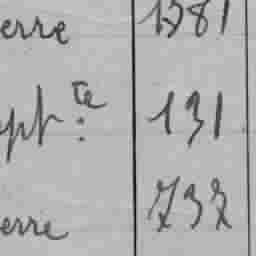 erre 1381
apt: te 131
erre 737